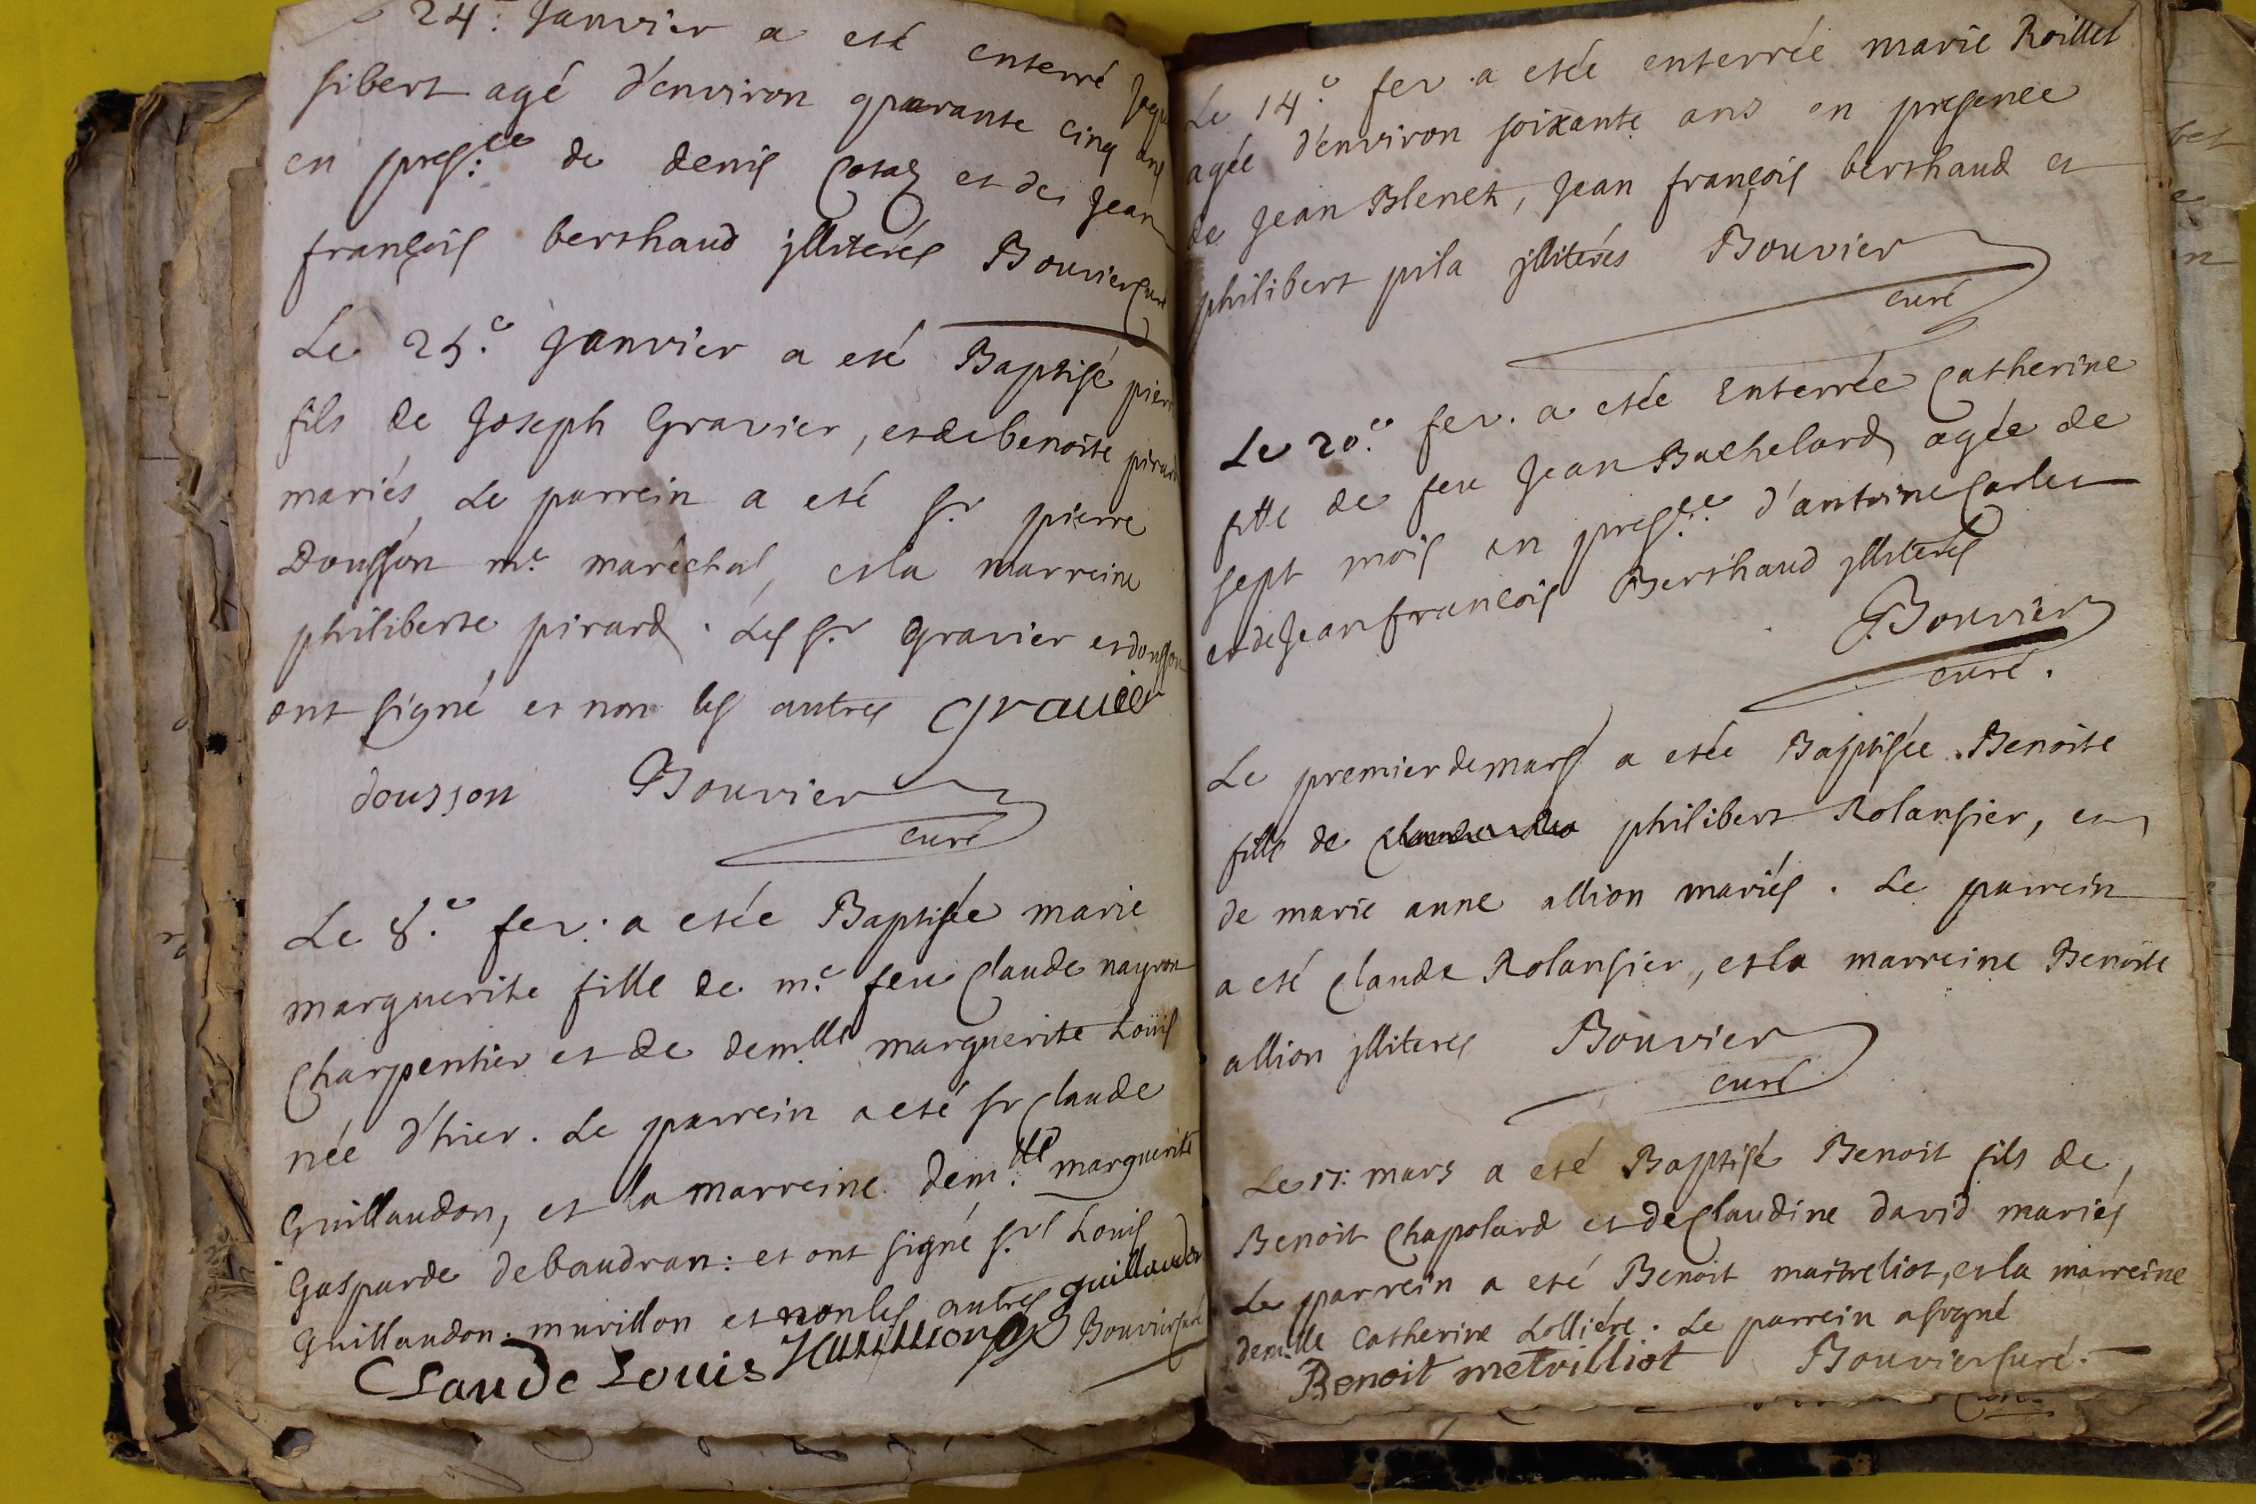 24.e Janvier a esté enterré Jaque
sibert agé d'environ quarante cinq ans
en pres.ce de denis Cotaz et de Jean
françois berthaud jlliterés Bouvier Curé
Le 25.e Janvier a esté Baptisé pierre
fils de Joseph Gravier, et de benoite pirard
mariés, Le parrein a esté Sr pierre
Dousson m.e maréchal, et la marreine
philiberte pirard. Les Sr Gravier et dousson
ont signé et non les autres gravier
dousson Bouvier
curé
Le 8.e fer. a estée Baptisée marie
marguerite fille de m.e feu Claude nayron
Charpentier et de demlle marguerite Loüis
née d'hier. Le parrein a esté Sr Claude
Guillaudon, et la marreine dem.lle marguerite
Gasparde debaudran: et ont signé Srs Louis
Guillaudon. murillon et non les autres guillaudon
Claude Louis Bouvier Curé
Le 14.e fer. a estée enterrée marie Roillet
agée d'environ soixante ans en presence
de Jean Blenet, Jean françois berthaud et
philibert pila jlliterés Bouvier
curé
Le 20.e fer. a estée Enterrée Catherine
fille de feu Jean Bachelard agée de
sept mois en pres.ce d'antoine Carlet
et de Jean françois Berthaud jlliterés
Bouvier
curé.
Le premier de mars a estée Baptisée Benoite
fille de philibert Rolansier, et
de marie anne allion mariés. Le parrein
a esté Claude Rolansier, et la marreine Benoite
allion jlliteres Bouvier
curé
Le 17: mars a esté Baptisé Benoit fils de
Benoit Chapolard et de Claudine david mariés
Le parrein a esté Benoit maitreliot, et la marreine
demlle Catherine Lolliére. Le parrein a signé
Benoit metrilliot Bouvier Curé.